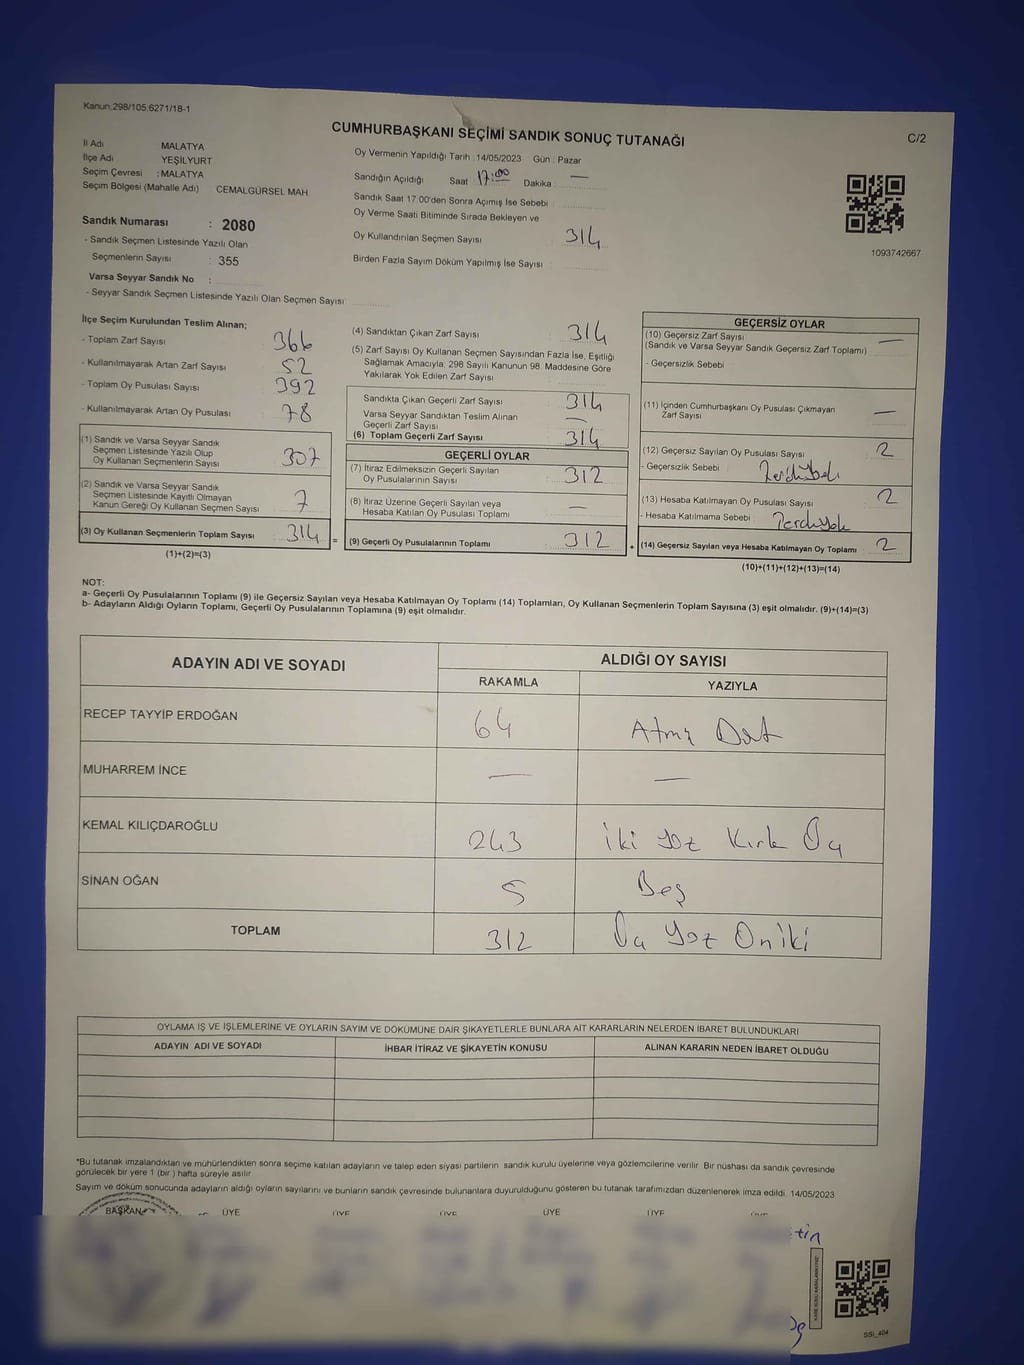 Kanun:298/105;6271/18-1
C/2
CUMHURBAŞKANI SEÇİMİ SANDIK SONUÇ TUTANAĞI
İl Adı MALATYA
İlçe Adı YEŞİLYURT
Seçim Çevresi : MALATYA
Seçim Bölgesi (Mahalle Adı) CEMALGÜRSEL MAH.
Sandık Numarası : 2080
- Sandık Seçmen Listesinde Yazılı Olan
Seçmenlerin Sayısı : 355
Varsa Seyyar Sandık No :
- Seyyar Sandık Seçmen Listesinde Yazılı Olan Seçmen Sayısı:
Oy Vermenin Yapıldığı Tarih : 14/05/2023 Gün : Pazar
Sandığın Açıldığı Saat 17:00 Dakika : —
Sandık Saat 17:00'den Sonra Açımış İse Sebebi :
Oy Verme Saati Bitiminde Sırada Bekleyen ve
Oy Kullandırılan Seçmen Sayısı : 314
Birden Fazla Sayım Döküm Yapılmış İse Sayısı :
1093742667
İlçe Seçim Kurulundan Teslim Alınan;
- Toplam Zarf Sayısı : 366
- Kullanılmayarak Artan Zarf Sayısı : 52
- Toplam Oy Pusulası Sayısı : 392
- Kullanılmayarak Artan Oy Pusulası : 78
(1) Sandık ve Varsa Seyyar Sandık
Seçmen Listesinde Yazılı Olup
Oy Kullanan Seçmenlerin Sayısı : 307
(2) Sandık ve Varsa Seyyar Sandık
Seçmen Listesinde Kayıtlı Olmayan
Kanun Gereği Oy Kullanan Seçmen Sayısı : 7
(3) Oy Kullanan Seçmenlerin Toplam Sayısı : 314
(1)+(2)=(3)
(4) Sandıktan Çıkan Zarf Sayısı : 314
(5) Zarf Sayısı Oy Kullanan Seçmen Sayısından Fazla İse, Eşitliği
Sağlamak Amacıyla; 298 Sayılı Kanunun 98. Maddesine Göre
Yakılarak Yok Edilen Zarf Sayısı :
Sandıkta Çıkan Geçerli Zarf Sayısı : 314
Varsa Seyyar Sandıktan Teslim Alınan
Geçerli Zarf Sayısı : —
(6) Toplam Geçerli Zarf Sayısı : 314
GEÇERLİ OYLAR
(7) İtiraz Edilmeksizin Geçerli Sayılan
Oy Pusulalarının Sayısı : 312
(8) İtiraz Üzerine Geçerli Sayılan veya
Hesaba Katılan Oy Pusulası Toplamı : —
= (9) Geçerli Oy Pusulalarının Toplamı : 312
GEÇERSİZ OYLAR
(10) Geçersiz Zarf Sayısı
(Sandık ve Varsa Seyyar Sandık Geçersiz Zarf Toplamı) : —
- Geçersizlik Sebebi :
(11) İçinden Cumhurbaşkanı Oy Pusulası Çıkmayan
Zarf Sayısı : —
(12) Geçersiz Sayılan Oy Pusulası Sayısı : 2
- Geçersizlik Sebebi :
(13) Hesaba Katılmayan Oy Pusulası Sayısı : 2
- Hesaba Katılmama Sebebi :
+ (14) Geçersiz Sayılan veya Hesaba Katılmayan Oy Toplamı : 2
(10)+(11)+(12)+(13)=(14)
NOT:
a- Geçerli Oy Pusulalarının Toplamı (9) ile Geçersiz Sayılan veya Hesaba Katılmayan Oy Toplamı (14) Toplamları, Oy Kullanan Seçmenlerin Toplam Sayısına (3) eşit olmalıdır. (9)+(14)=(3)
b- Adayların Aldığı Oyların Toplamı, Geçerli Oy Pusulalarının Toplamına (9) eşit olmalıdır.
ADAYIN ADI VE SOYADI ALDIĞI OY SAYISI
RAKAMLA YAZIYLA
RECEP TAYYİP ERDOĞAN 64 Atmış Dört
MUHARREM İNCE — —
KEMAL KILIÇDAROĞLU 243 İki yüz Kırk Üç
SİNAN OĞAN 5 Beş
TOPLAM 312 Üç yüz Oniki
OYLAMA İŞ VE İŞLEMLERİNE VE OYLARIN SAYIM VE DÖKÜMÜNE DAİR ŞİKAYETLERLE BUNLARA AİT KARARLARIN NELERDEN İBARET BULUNDUKLARI
ADAYIN ADI VE SOYADI İHBAR İTİRAZ VE ŞİKAYETİN KONUSU ALINAN KARARIN NEDEN İBARET OLDUĞU
*Bu tutanak imzalandıktan ve mühürlendikten sonra seçime katılan adayların ve talep eden siyasi partilerin sandık kurulu üyelerine veya gözlemcilerine verilir. Bir nüshası da sandık çevresinde
görülecek bir yere 1 (bir ) hafta süreyle asılır.
Sayım ve döküm sonucunda adayların aldığı oyların sayılarını ve bunların sandık çevresinde bulunanlara duyurulduğunu gösteren bu tutanak tarafımızdan düzenlenerek imza edildi. 14/05/2023
BAŞKAN ÜYE ÜYE ÜYE ÜYE ÜYE
SSI_404